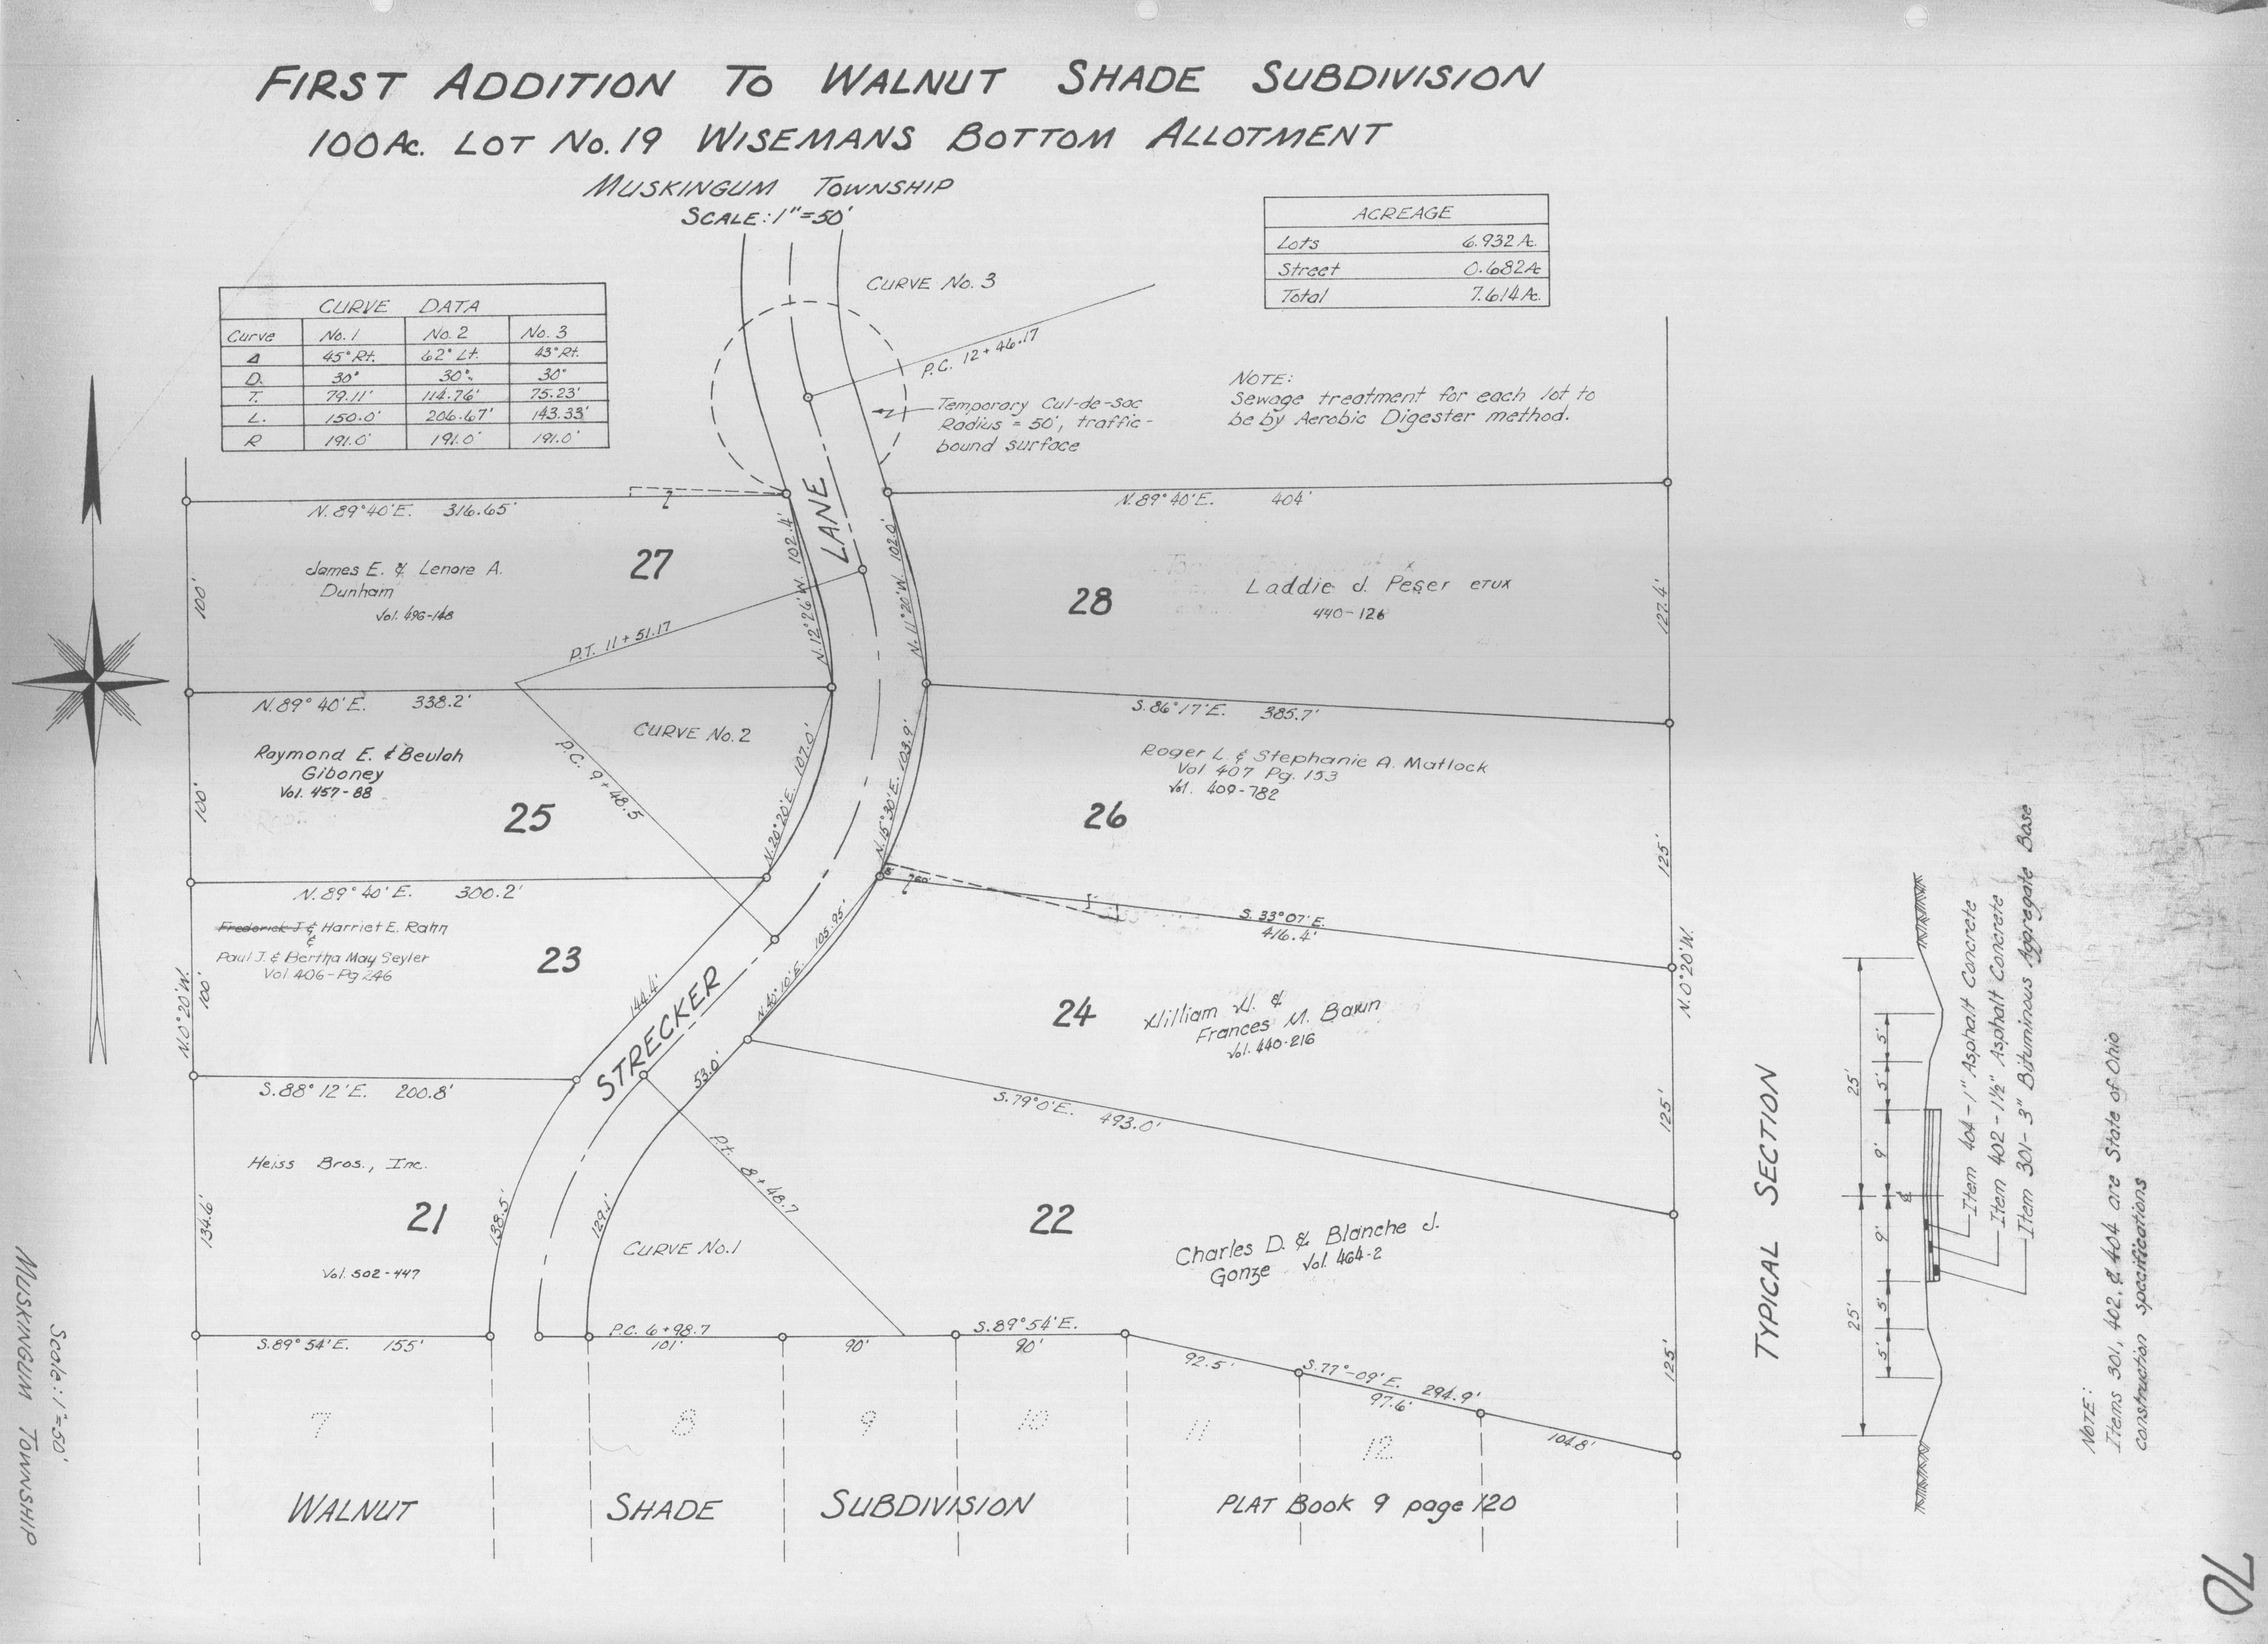 FIRST ADDITION TO WALNUT SHADE SUBDIVISION
100 Ac. LOT No. 19 WISEMANS BOTTOM ALLOTMENT
MUSKINGUM TOWNSHIP
SCALE: 1"=50'
ACREAGE
Lots 6.932 Ac.
Street 0.682 Ac
Total 7.614 Ac.
CURVE DATA
Curve No. 1 No. 2 No. 3
Δ 45° Rt. 62° Lt. 43° Rt.
D. 30° 30° 30°
T. 79.11' 114.76' 75.23'
L. 150.0' 206.67' 143.33'
R 191.0' 191.0' 191.0'
CURVE No. 3
P.C. 12+46.17
Temporary Cul-de-sac
Radius = 50', traffic-
bound surface
NOTE:
Sewage treatment for each lot to
be by Aerobic Digester method.
N. 89° 40' E. 316.65'
N. 89° 40' E. 404'
LANE
N. 12° 26' W. 102.4'
N. 11° 20' W. 102.0'
100'
27
James E. & Lenore A.
Dunham
Vol. 496-148
P.T. 11+51.17
28
Laddie J. Peser ETUX
440-126
127.4'
N. 89° 40' E. 338.2'
S. 86° 17' E. 385.7'
CURVE No. 2
Raymond E. & Beulah
Giboney
Vol. 457-88
100'
25
P.C. 9+48.5
N. 20° 20' E. 107.0'
N. 15° 30' E. 103.9'
Roger L & Stephanie A. Matlock
Vol 407 Pg. 153
Vol. 409-782
26
125'
N. 89° 40' E. 300.2'
S. 33° 07' E.
416.4'
Frederick J & Harriet E. Rahn
&
Paul J. & Bertha May Seyler
Vol 406-Pg 246
23
N. 0° 20' W.
100'
144.4'
STRECKER
N. 40° 10' E. 105.95'
24
William W. &
Frances M. Baun
Vol. 440-216
N. 0° 20' W.
125'
S. 88° 12' E. 200.8'
53.0'
S. 79° 0' E. 493.0'
P.t. 8+48.7
Heiss Bros., Inc.
21
Vol. 502-447
134.6'
138.5'
129.1'
CURVE No. 1
22
Charles D. & Blanche J.
Gonze Vol. 464-2
125'
S. 89° 54' E. 155'
P.C. 6+98.7
101'
90'
S. 89° 54' E.
90'
92.5'
S. 77°-09' E. 294.9'
97.6'
104.8'
7 8 9 10 11 12
WALNUT SHADE SUBDIVISION PLAT Book 9 page 120
TYPICAL SECTION
25' 25'
5' 5' 9' 9' 5' 5'
℄
Item 404-1" Asphalt Concrete
Item 402-1½" Asphalt Concrete
Item 301-3" Bituminous Aggregate Base
NOTE:
Items 301, 402, & 404 are State of Ohio
construction specifications
Scale: 1"=50'
MUSKINGUM TOWNSHIP
70